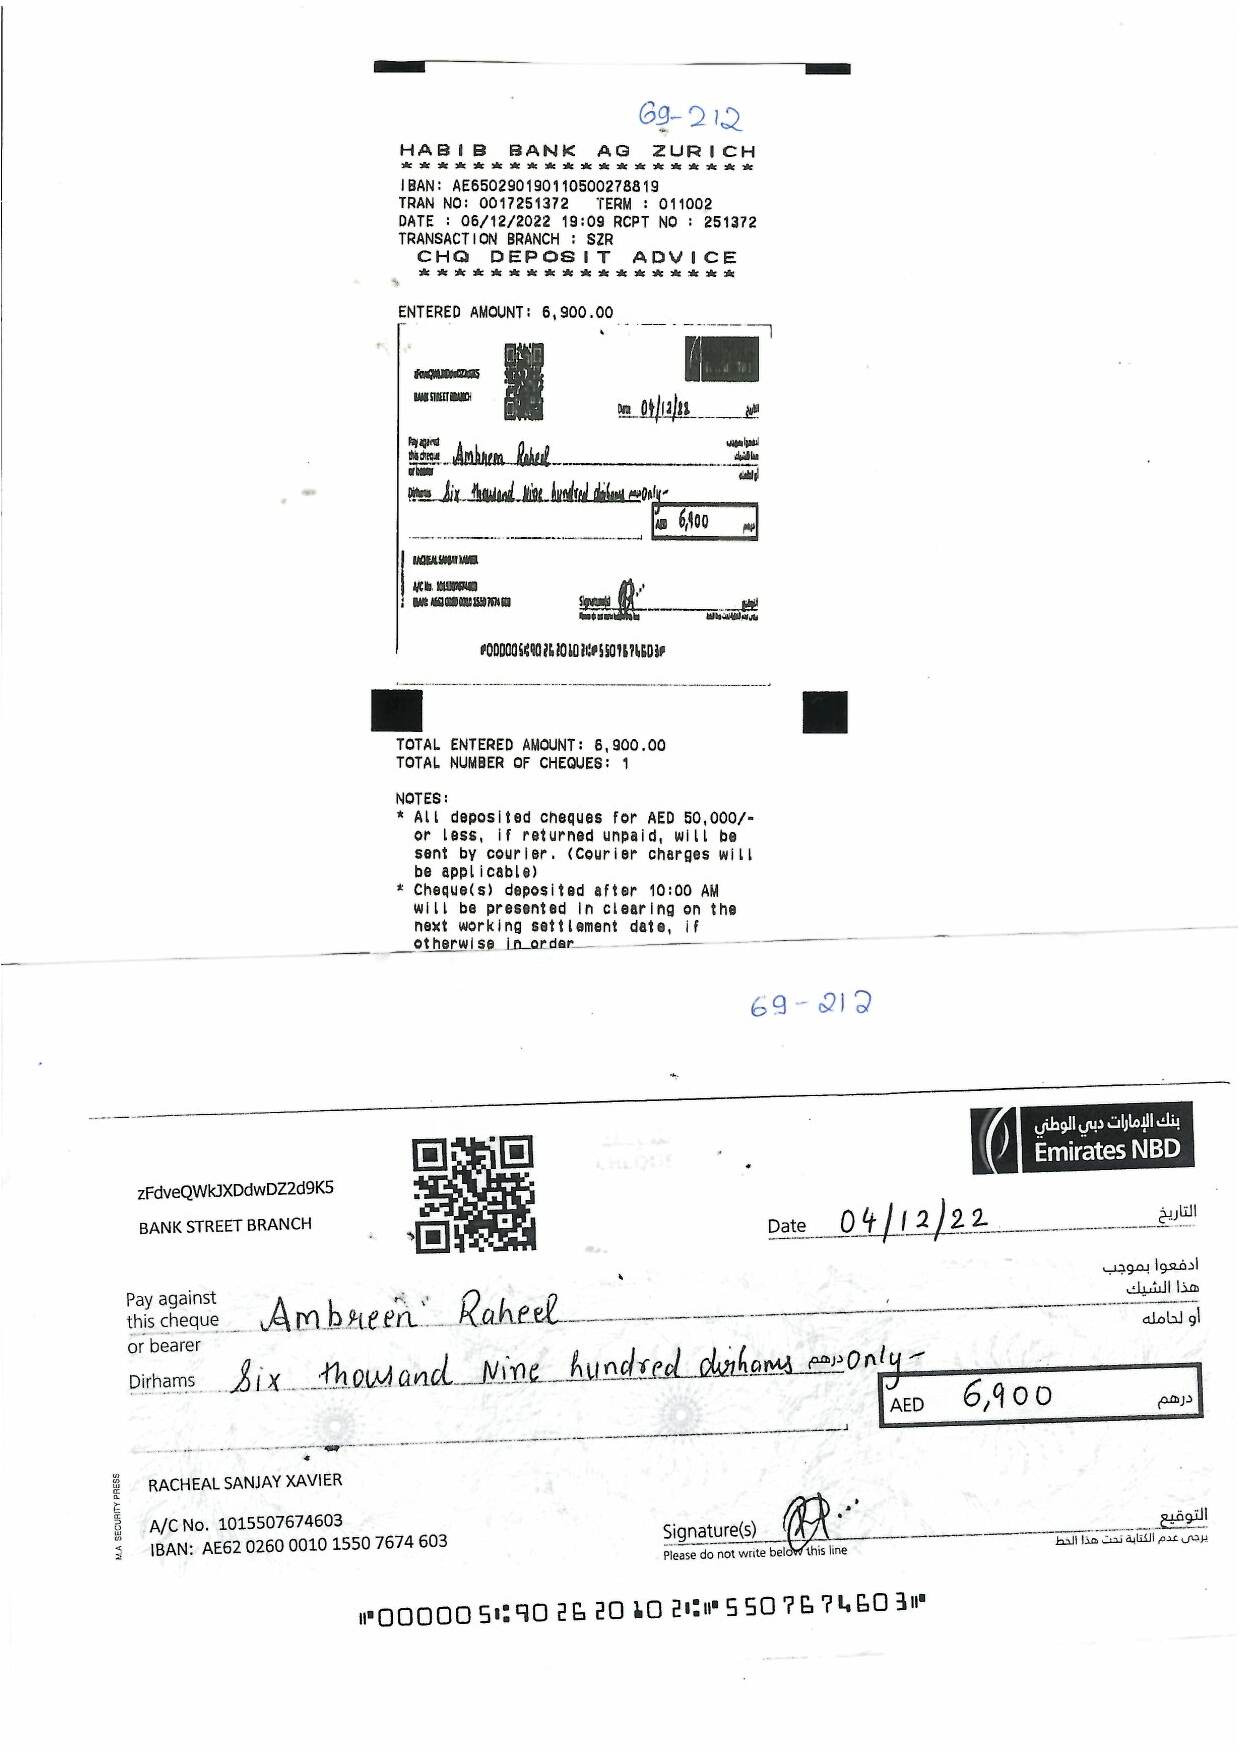 69-212
HABIB BANK AG ZURICH
********************
IBAN: AE650290190110500278819
TRAN NO: 0017251372 TERM : 011002
DATE : 06/12/2022 19:09 RCPT NO : 251372
TRANSACTION BRANCH : SZR
CHQ DEPOSIT ADVICE
******************
ENTERED AMOUNT: 6,900.00
BANK STREET BRANCH
Date 04/12/22 التاريخ
Pay against
this cheque Ambreen Raheel
or bearer
Dirhams Six thousand Nine hundred dirhams درهم Only-
AED 6,900 درهم
RACHEAL SANJAY XAVIER
A/C No. 1015507674603
IBAN: AE62 0260 0010 1550 7674 603
Signature(s) التوقيع
TOTAL ENTERED AMOUNT: 6,900.00
TOTAL NUMBER OF CHEQUES: 1
NOTES:
* All deposited cheques for AED 50,000/-
or less, if returned unpaid, will be
sent by courier. (Courier charges will
be applicable)
* Cheque(s) deposited after 10:00 AM
will be presented in clearing on the
next working settlement date, if
otherwise in order
69-212
بنك الإمارات دبي الوطني
Emirates NBD
zFdveQWkJXDdwDZ2d9K5
BANK STREET BRANCH
CHEQUE
Date 04/12/22 التاريخ
ادفعوا بموجب
Pay against هذا الشيك
this cheque Ambreen Raheel
or bearer أو لحامله
Dirhams Six thousand Nine hundred dirhams درهم Only-
AED 6,900 درهم
M.A SECURITY PRESS
RACHEAL SANJAY XAVIER
A/C No. 1015507674603
IBAN: AE62 0260 0010 1550 7674 603
Signature(s) التوقيع
Please do not write below this line يرجى عدم الكتابة تحت هذا الخط
⑈000005⑆902620102⑆⑈5507674603⑈